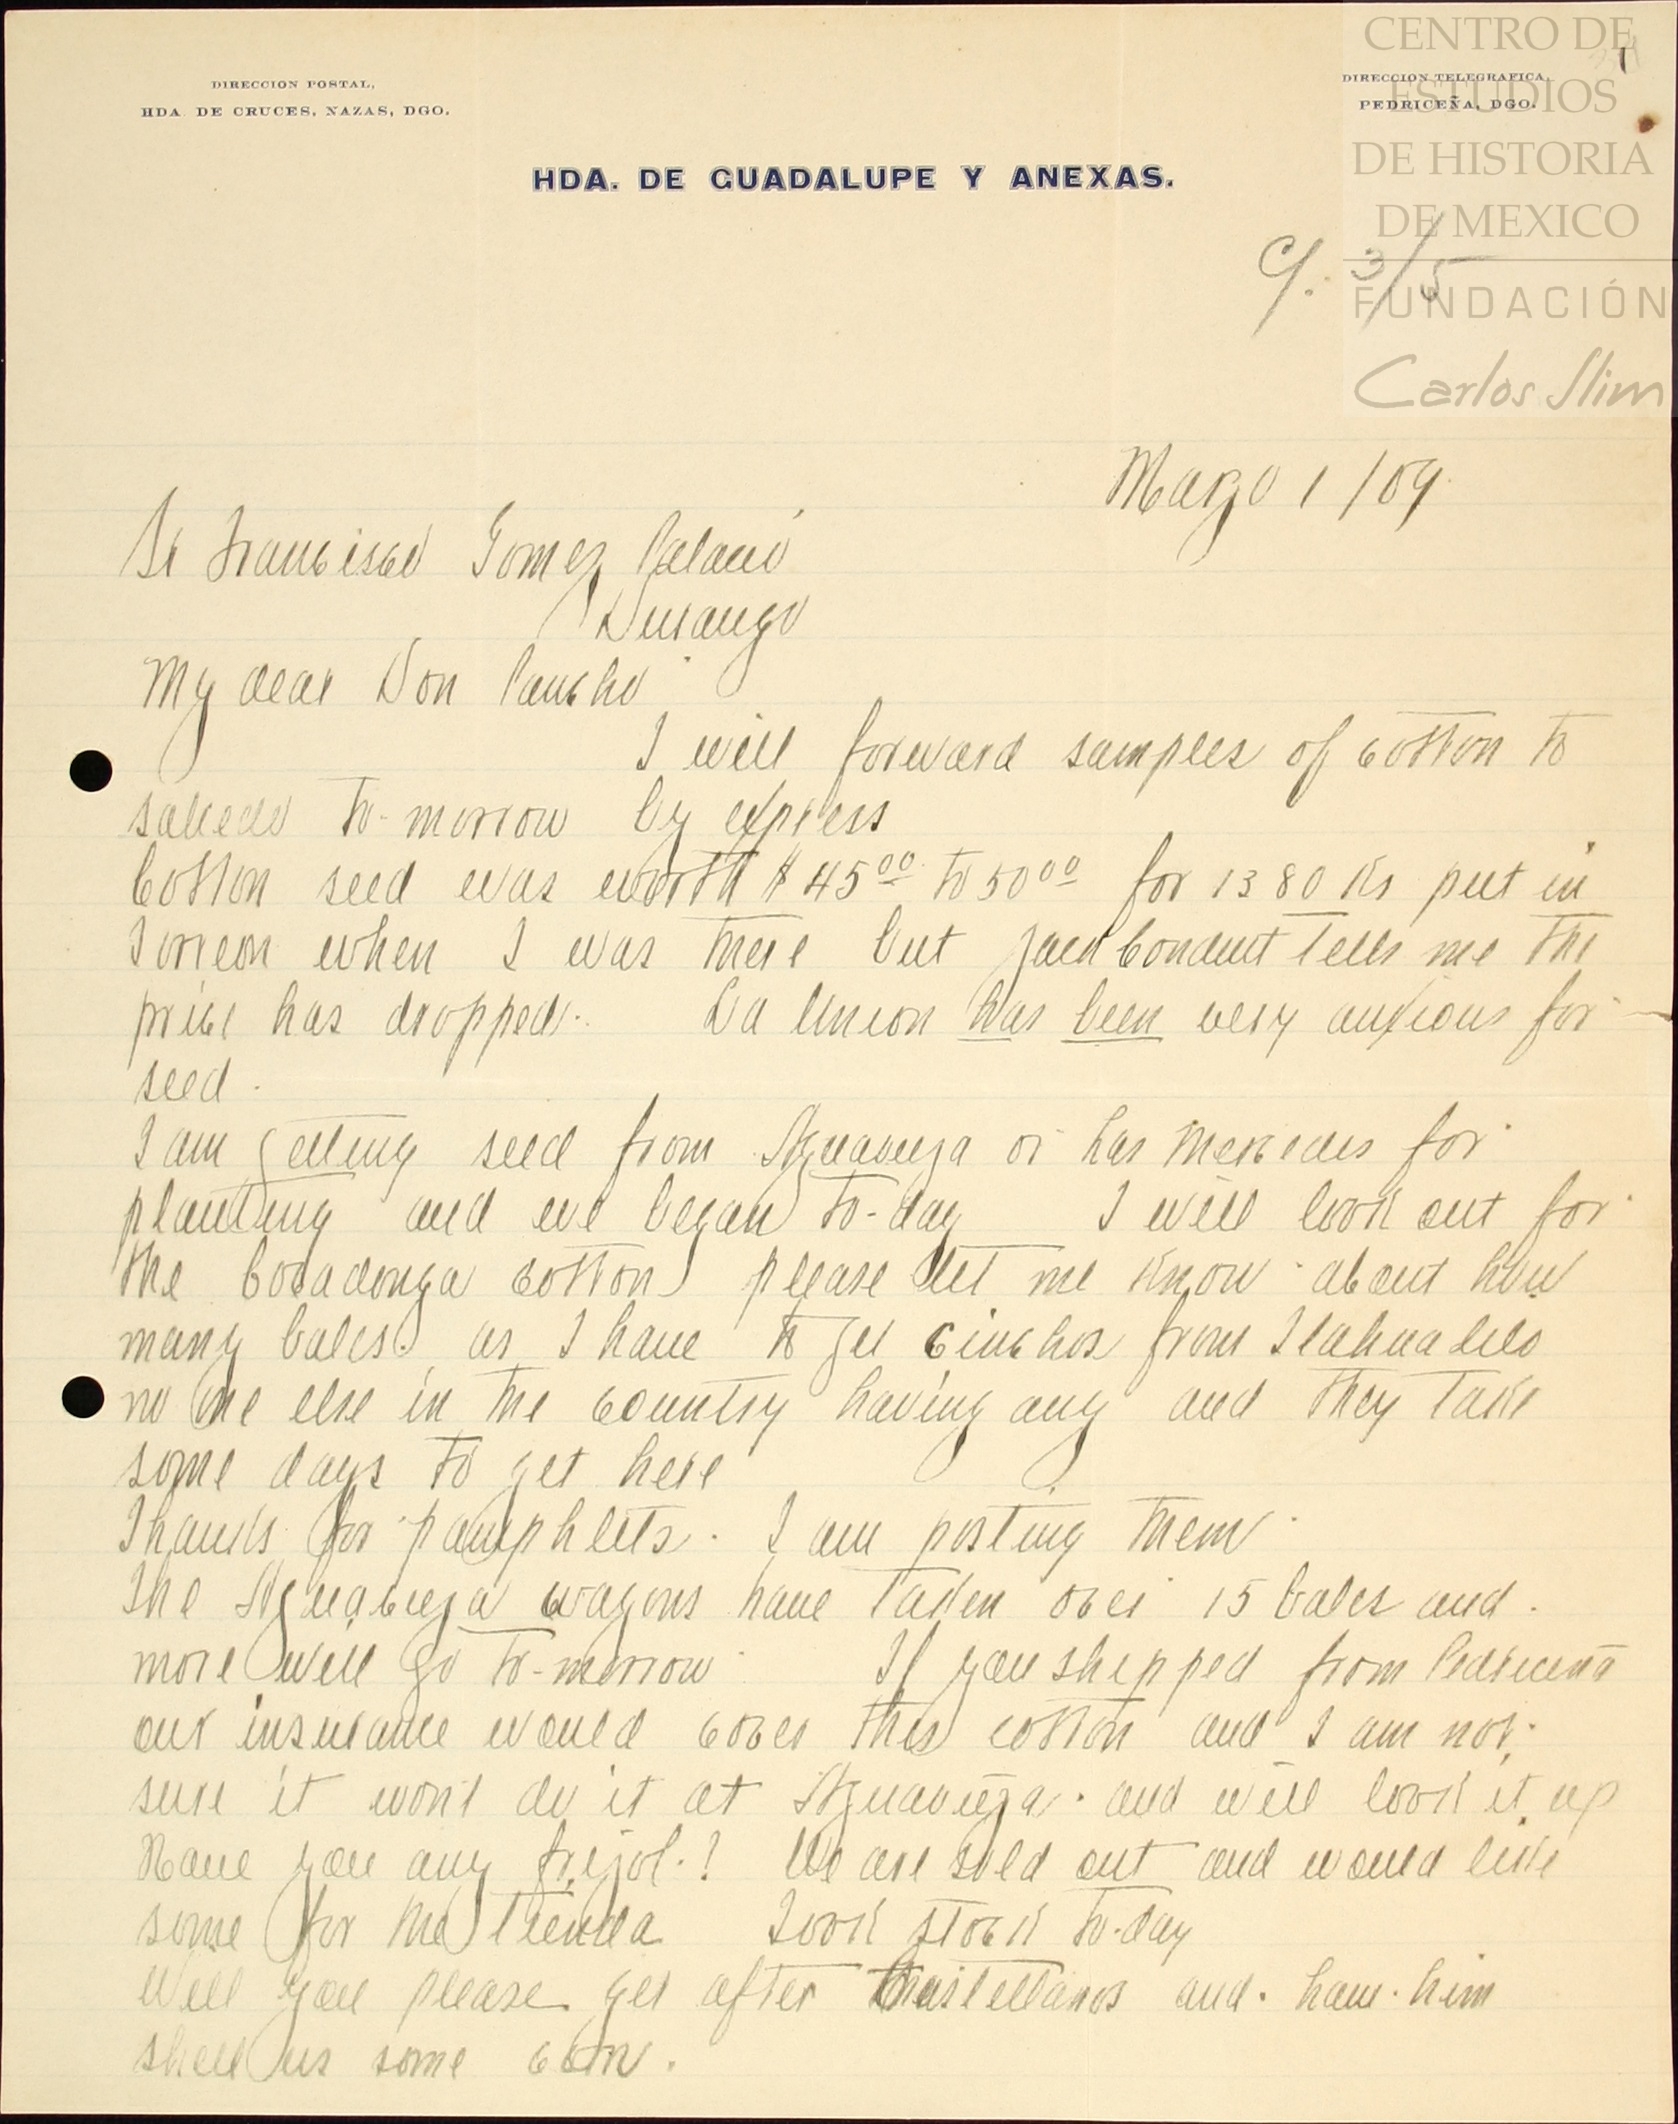 CENTRO DE
ESTUDIOS
DE HISTORIA
DE MEXICO
FUNDACIÓN
Carlos Slim
1
DIRECCION POSTAL,
HDA. DE CRUCES, NAZAS, DGO.
DIRECCION TELEGRAFICA,
PEDRICEÑA, DGO.
HDA. DE GUADALUPE Y ANEXAS.
C/. 3/5
Marzo 1/09.
Sr Francisco Gomez Palacio
Durango
My dear Don Pancho
I will forward samples of cotton to
Salcedo to-morrow by express
Cotton seed was worth $45 00 to 50 00 for 1380 Ks put in
Torreon when I was there but Jack Conduit tells me the
price has dropped. La Union has been very anxious for
seed.
I am getting seed from Aguavieja or Las Mercedes for
planting and we began to-day I will look out for
the Covadonga cotton please let me know about how
many bales. as I have to get cinchos from Tlahualilo
no one else in the country having any and they take
some days to get here
Thanks for pamphlets. I am posting them
The Aguavieja wagons have taken over 15 bales and.
more will go to-morrow If you shipped from Pedriceña
our insurance would cover this cotton and I am not
sure it wont do it at Aguavieja. and will look it up
Have you any frijol.? We are sold out and would like
some for the Tienda Took stock to-day
Will you please get after Castellanos and. have. him
shell us some corn.